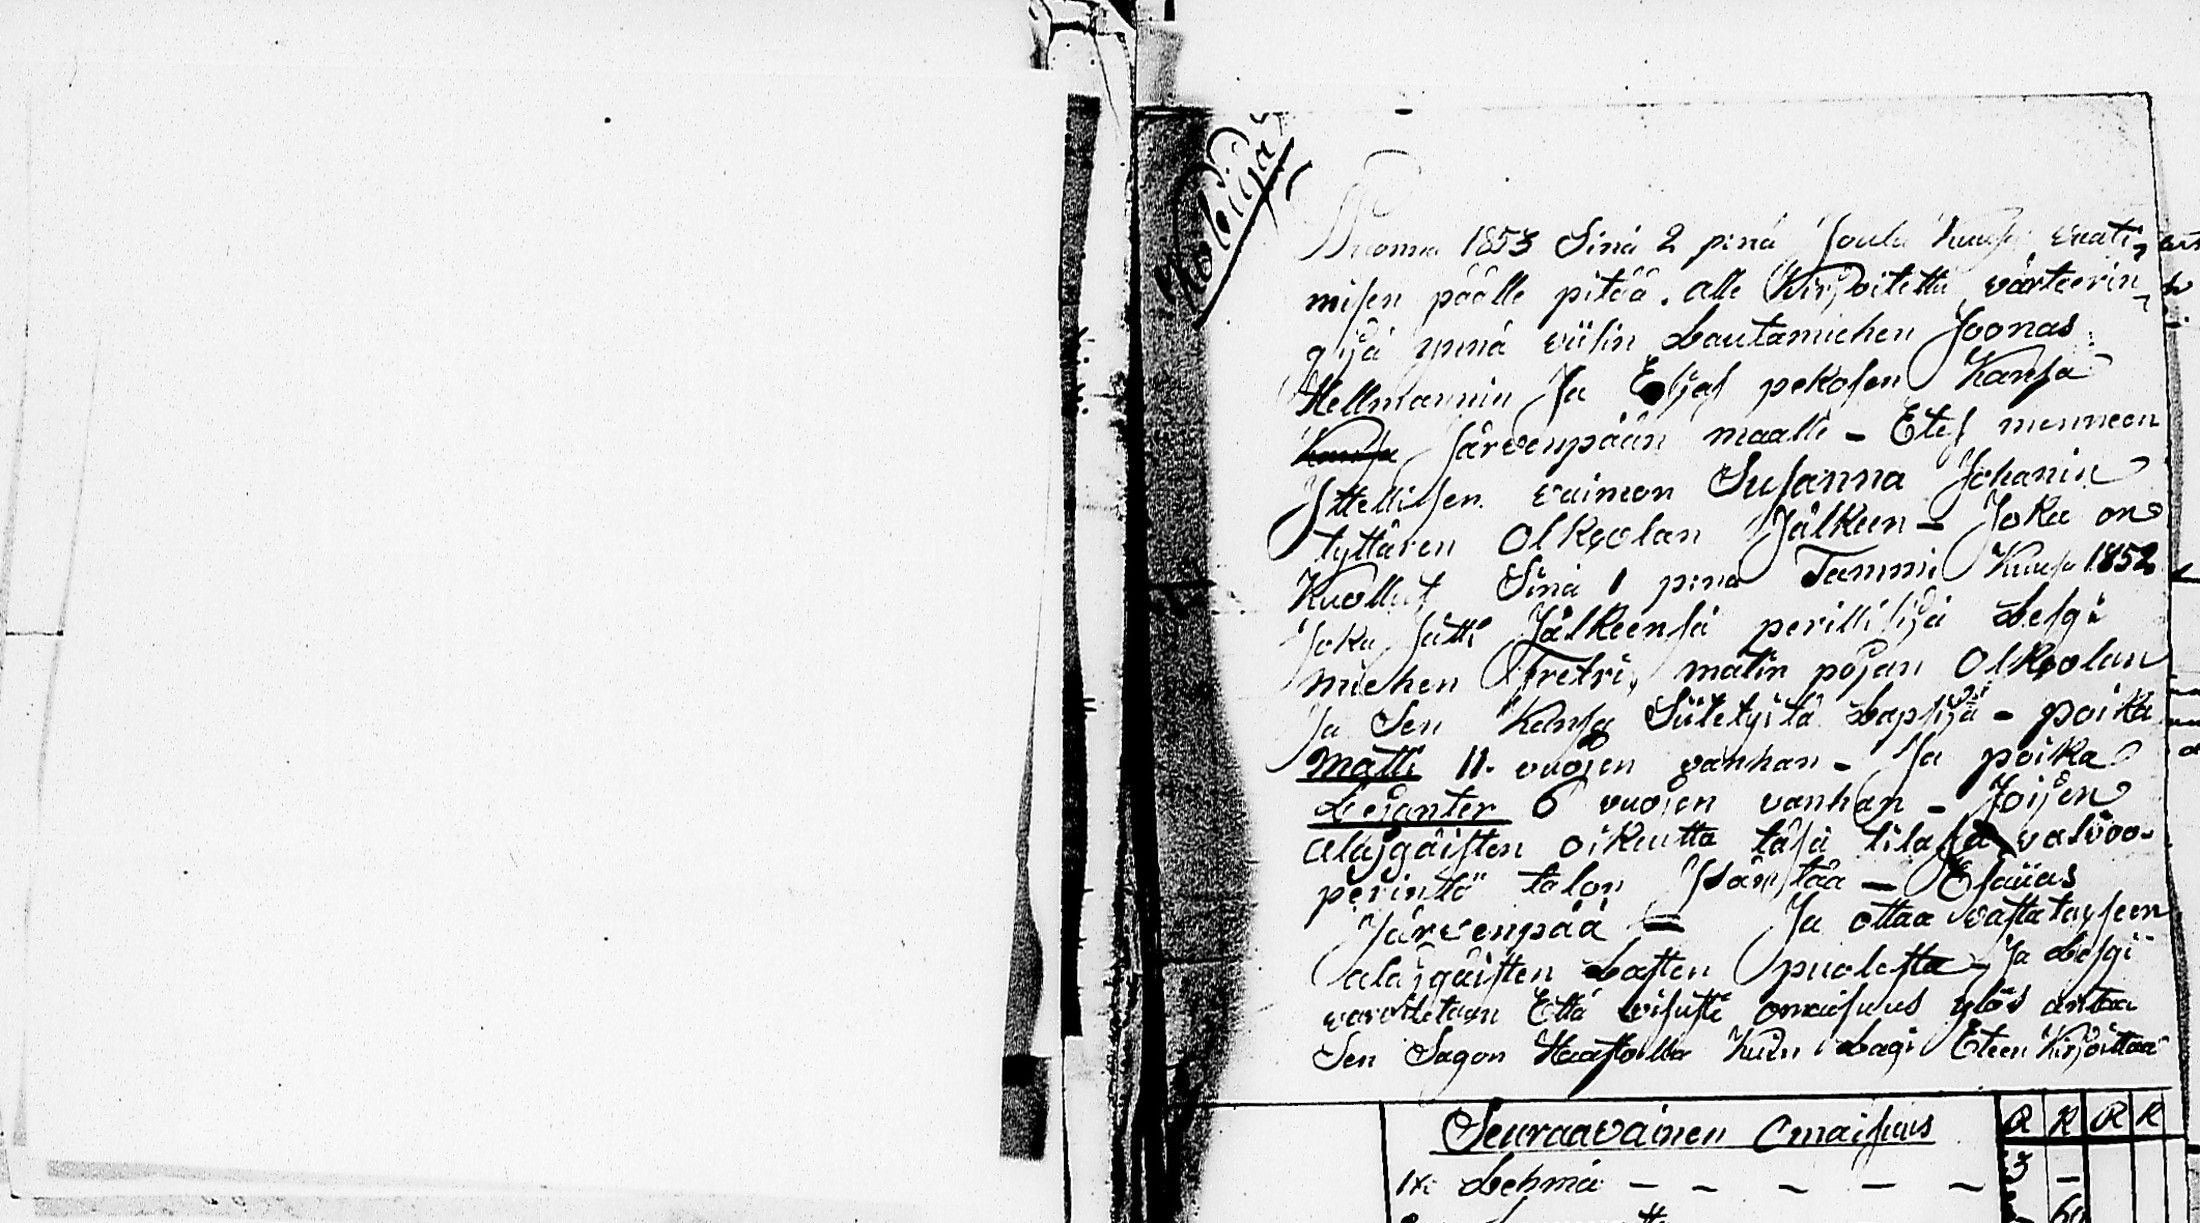 Kobija
Wuonna 1853 Sinä 2 pinä Joulu Kuusa vaati-
misen päälle pitää. alle Kirjoitettu värteerin-
gijä ynnä viilin Lautamiehen Joonas
Hellmannin Ja Esjas pekosen Kansa
Kansa Järvenpään maalle - Etes menneen
Ittellisen vaimon Susanna Johanin
tyttären Olkgolan Jälkeen - Joka on
Kuollut Sinä 1 pinä Tammi Kuusa 1852
Joka Jätti Jälkeensä perillisijä Lesgi
miehen Fretri, matin pojan Olkgolan
Ja Sen Kansa Siitetyitä Lapsijä - poika
Matti 11. vuojen vanhan - Ja poika
6 vuojen vanhan - Joijen
alajgäisten oikeutta täsä tilasa valvoo-
perintö talon Isäntää - Esaijas
Järvenpää - Ja ottaa vastataxseen
alajgäisten Lasten puolesta - Ja Lesgi
varoitetaan Että visusti omaisuus ylös antaa
Sen Sagon Haastolla Kuin Lagi Eteen Kirjoittaa
Seuraavainen Omaisuus R K R K
1xi Lehmä - - - - - 3 -
60